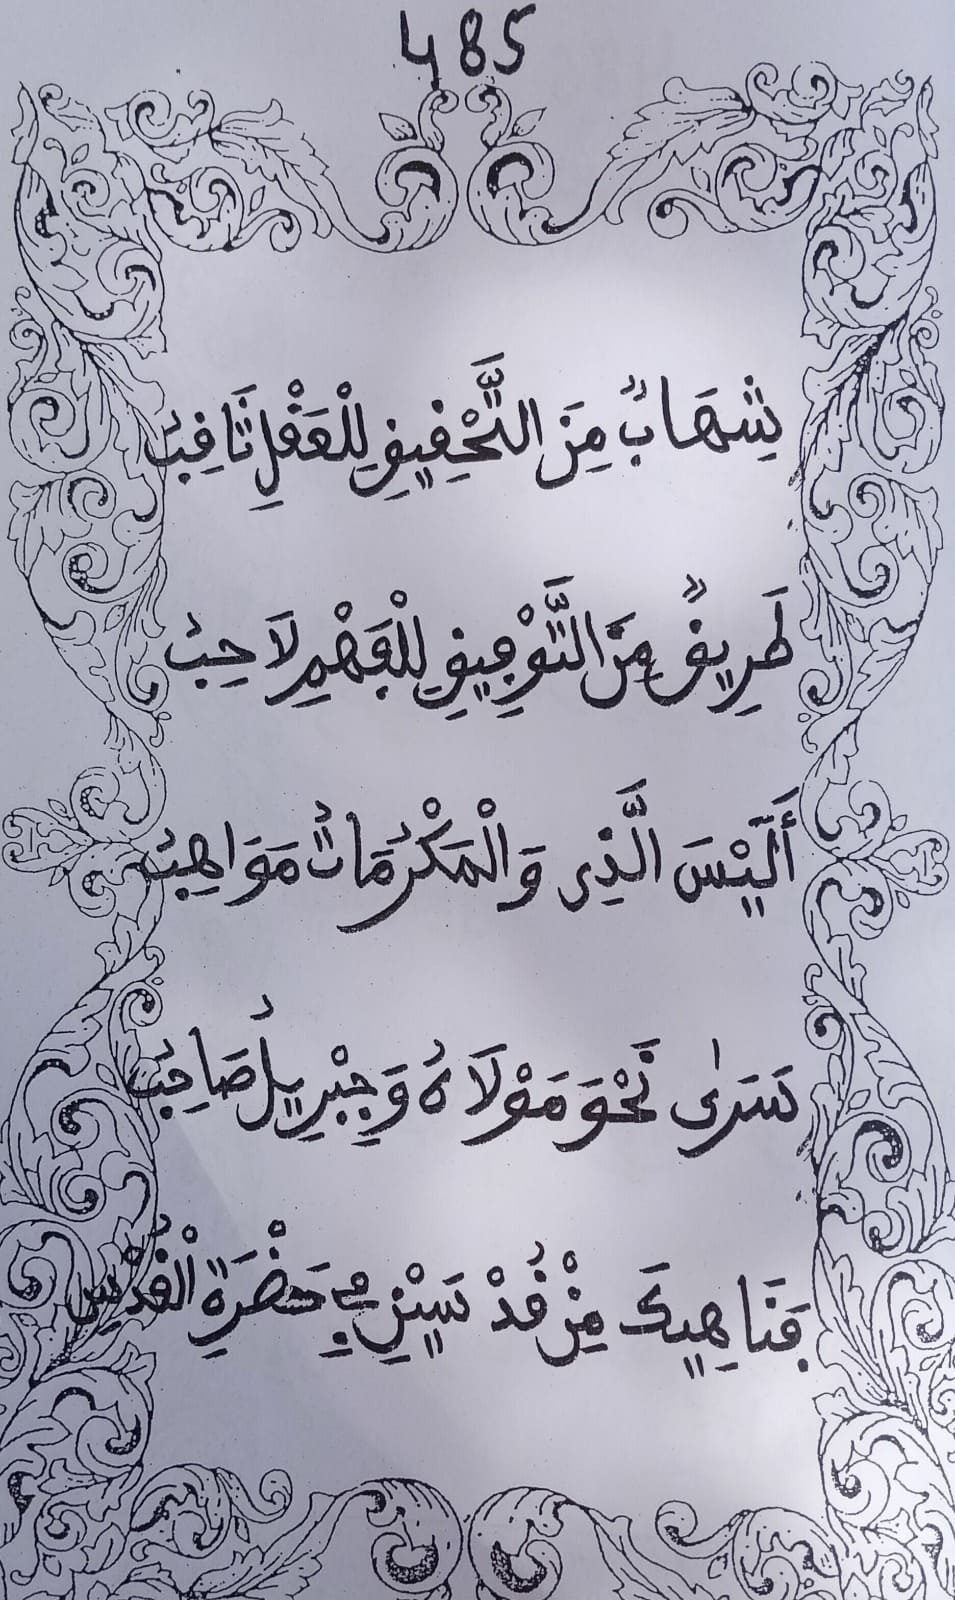 485
شِهَابٌ مِنَ التَّحْقِيقِ لِلْعَقْلِ ثَاقِبُ
طَرِيقٌ مِنَ التَّوْفِيقِ لِلْفَهْمِ لَاحِبُ
أَلَيْسَ الَّذِي وَالْمَكْرُمَاتُ مَوَاهِبُ
سَرَىٰ نَحْوَ مَوْلَاهُ وَجِبْرِيلُ صَاحِبُ
فَنَاهِيكَ مِنْ قُدْسَيْنِ فِي حَضْرَةِ الْقُدْسِ